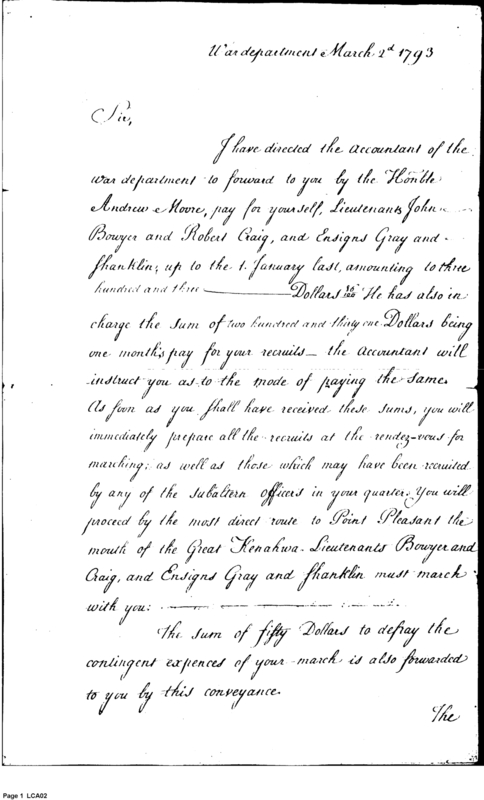 War department March 2d 1793
Sir,
I have directed the Accountant of the
War department to forward to you by the Honble
Andrew Moore, pay for yourself, Lieutenants John
Bowyer and Robert Craig, and Ensigns Gray and
Shanklin; up to the 1. January last, amounting to three
hundred and three Dollars 80/100. He has also in
charge the sum of two hundred and thirty one Dollars being
one months pay for your recruits_ the accountant will
instruct you as to the mode of paying the same.
As soon as you shall have received these sums, you will
immediately prepare all the recruits at the rendez-vous for
marching; as well as those which may have been recruited
by any of the subaltern officers in your quarter. You will
proceed by the most direct route to Point Pleasant the
mouth of the Great Kenahwa. Lieutenants Bowyer and
Craig, and Ensigns Gray and Shanklin must march
with you:
The sum of fifty Dollars to defray the
contingent expences of your march is also forwarded
to you by this conveyance.
The
Page 1 LCA02